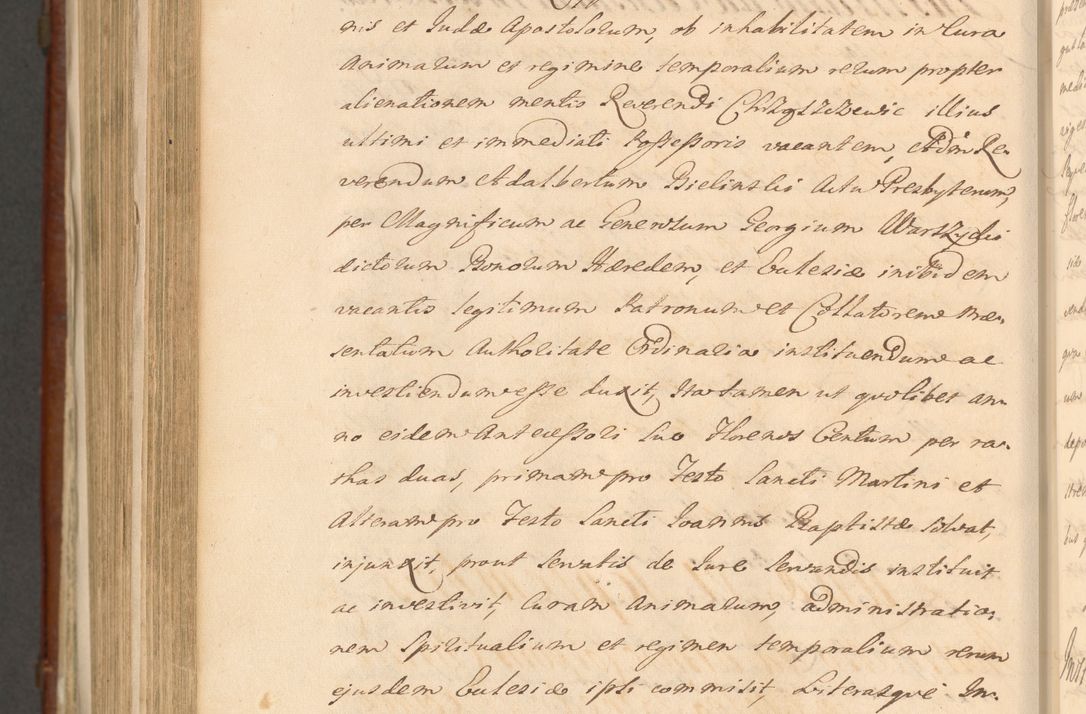 nis et Judæ Apostolorum, ob inhabilitatem in Cura
Animarum et regimine temporalium rerum propter
alienationem mentis Reverendi Chrząszczewic illius
ultimi et immediati Possessoris vacantem, Admo Re-
verendum Adalbertum Bielinski Actu Presbyterum,
per Magnificum ac Generosum Georgium Warszycki
dictorum Bonorum Hæredem, et Eulesiæ inibidem
vacantis legitimum Patronum et Collatorem Præ-
sentatum Authoritate Ordinaria instituendum ac
investiendum esse duxit, Ita tamen ut quolibet an-
no eidem Antecessori suo Florenos Centum per ra-
thas duas, primam pro Festo Sancti Martini et
Alteram pro Festo Sancti Joannis Baptistæ solvat,
injunxit, prout servatis de Jure servandis instituit
ac investivit, Curam Animarum, administratio-
nem Spiritualium et regimen temporalium rerum
ejusdem Eulesiæ ipsi commisit, Literasque In-